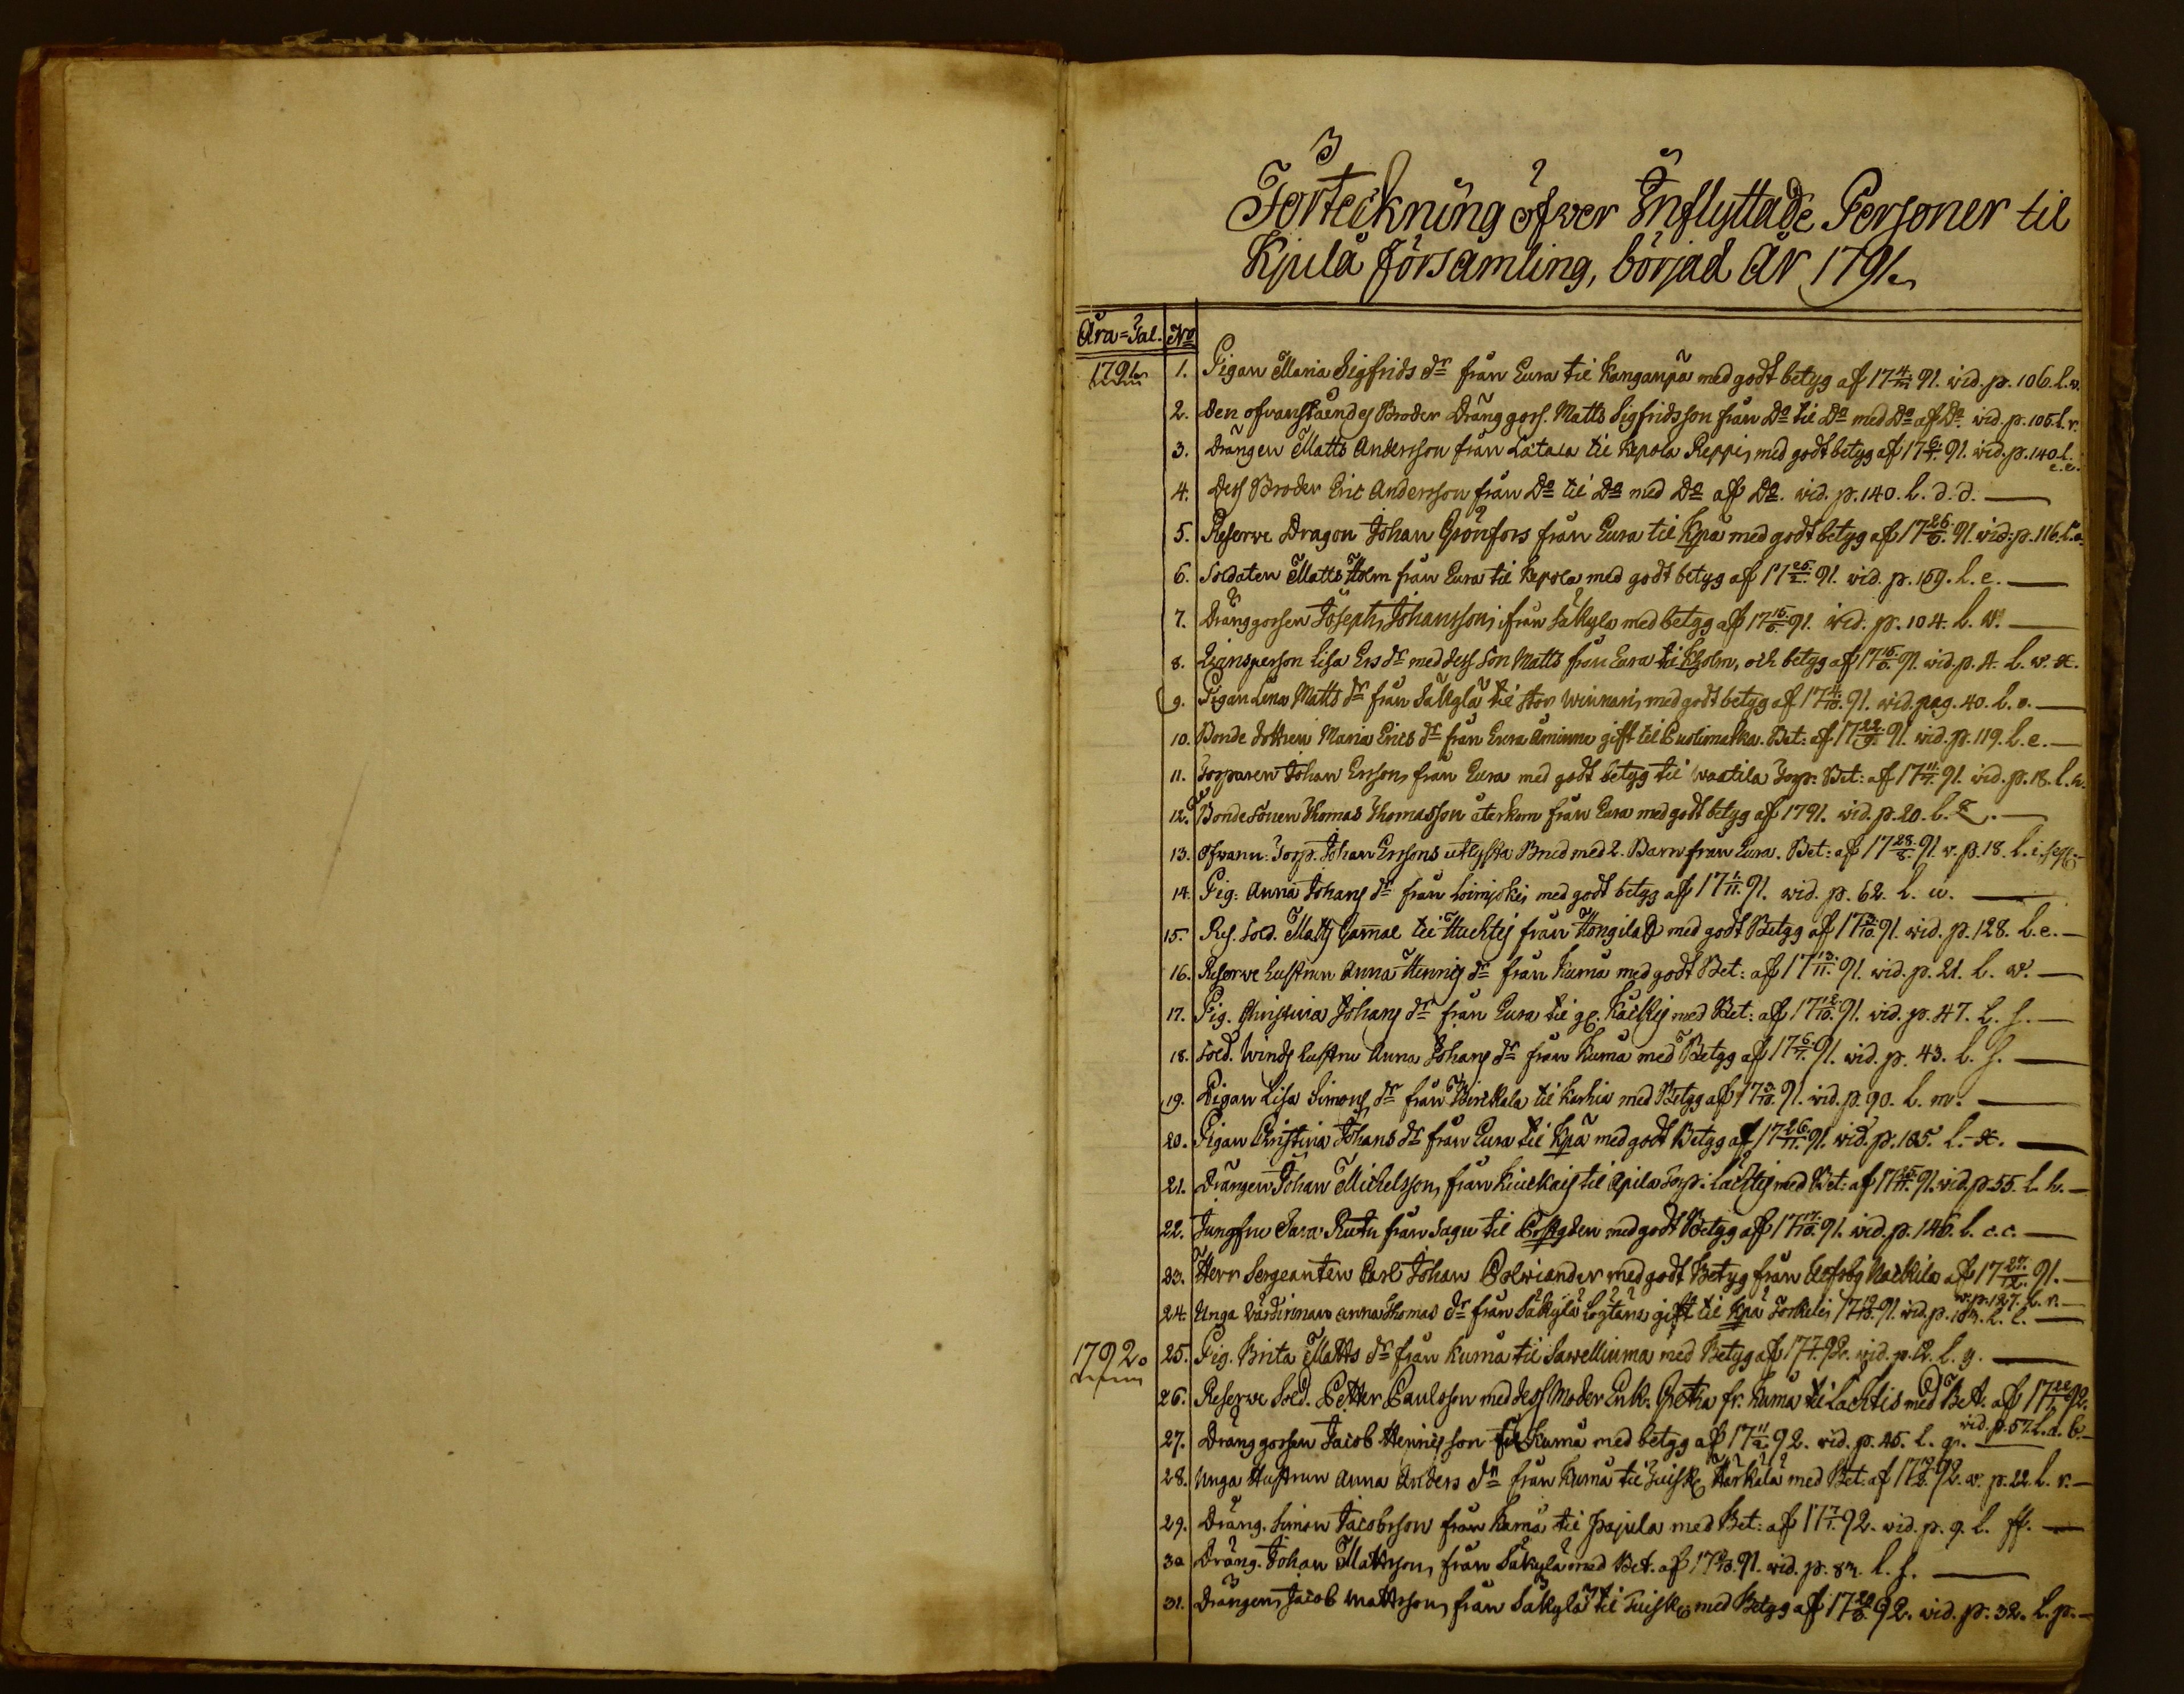 Förteckning öfver Inflyttade Personer til
Kjula församling, börjad År 1791.
Åra=Tal. No
1791. 1. Pigan Maria Sigfrids dr från Eura til Kanganpä med godt betyg af 17 4/ 91. wid. p. 106. l. v.
2. Den ofvanståendes Broder Dränggoss. Matts Sigfridsson från Do til Do med Do af Do. wid. p. 106. l. r.
3. Drängen Matts Andersson från Latala til Kepola Reppi, med godt betyg af 17 6/7 91. wid. p. 140. l. c.c.
4. Dess Broder Eric Andersson från Do til Do med Do af Do. wid. p. 140. l. d. d.
5. Reserve Dragon Johan Grönfors från Eura til Kpä med godt betyg af 17 26/6 91. wid. p. 116. l. a.
6. Soldaten Matts Holm från Eura til Kepola med godt betyg af 17 25/2 91. wid. p. 159. l. e.
7. Dränggossen Joseph Johansson, ifrån Säkyla med betyg af 17 16/6 91. wid. p. 104. l. w.
8. Lisa Ers dr med dess Son Matts från Eura til Kholm, och betyg af 17 16/6 91. wid. p. 4. l. w. x.
9. Pigan Lena Matts dr från Säkylä til Stor Winnari, med godt betyg af 17 4/10 91. wid. pag. 40. l. o.
10. Bonde dottren Maria Erics dr från Eura Aminne gift til Puolimatka. Bet: af 17 22/9 91. wid. p. 119. l. e.
11. Torparen Johan Ersson, från Eura med godt betyg til Waatila Torp: Bet: af 17 11/7 91. wid. p. 18. l. h.
12. Bondesonen Thomas Thomasson återkom från Eura med godt betyg af 1791. wid. p. 20. l. z.
13. Ofvann: Torp. Johan Erssons utlysta Brud med 2. Barn från Eura. Bet: af 17 28/8 91. w. p. 18. l. i. seq.
14. Pig. Anna Johans dr från Loimjoki, med godt betyg af 17 1/11 91. wid. p. 62. l. u.
15. Res. Sold. Matts Gammal til Huchtis från Hongila med godt Betyg af 17 /10 91. wid. p. 128. l. e.
16. Reserve hustrun Anna Hennis dr från Kumå med godt Bet: af 17 13/11 91. wid. p. 21. l. w.
17. Pig. Christina Johans dr från Eura til ge. Kackis med Bet: af 17 12/10 91. wid. p. 47. l. s.
18. Sold. Winds hustru Anna Johans dr från Kumå med Betyg af 17 6/7 91. wid. p. 43. l. s.
19. Pigan Lisa Simons dr från Birckala til Karhia med Betyg af 17 3/10 91. wid. p. 90. l. m.
20. Pigan Christina Johans dr från Eura til Kpä med godt Betyg af 17 26/11 91. wid. p. 185. l. x.
21. Drängen Johan Michelsson, från Kiuckais til Apila Torp: Lachtis med Bet: af 17 25/11 91. wid. p. 55. l. h.
22. Jungfru Sara Ruth från Sagu til Prstgden med godt Betyg af 17 17/10 91. wid. p. 146. l. c.c.
23. Herr Sergeanten Carl Johan Polviander med godt Betyg från Ulfsby Nackila af 17 27/12 91.
w. p. 127. l. r.
24. Unga Värdinnan Anna Thomas dr från Säkylä Löytäna gift til Kpä Torkeli, 17 /10 91. wid. p. l. l.
1792. 25. Pig. Brita Matts dr från Kumå til Sawellinma med Betyg af 17 92. wid. p. 12. l. y.
26. Reserve Sold. Petter Paulsson med dess Moder Enk. Gretha fr. Kumå til Lachtis med Bet. af 17 22/1 92.
wid. p. 57. l. a. b.
27. Dränggossen Jacob Hennisson från Kumå med betyg af 17 11/2 92. wid. p. 45. l. q.
28. Unga Hustrun Anna Anders dr från Kumå til Tuisk Härkälä med Bet: af 17 92. w. p. 22. l. r.
29. Dräng. Simon Jacobsson från Kumå til Pajula med Bet: af 17 7/1 92. wid. p. 9. l. ff.
30 Dräng. Johan Mattsson, från Säkylä med Bet. af 17 91. wid. p. 83. l. s.
31. Drängen Jacob Mattsson, från Säkylä til Tuisk, med Betyg af 17 20/6 92. wid. p. 32. l. p.